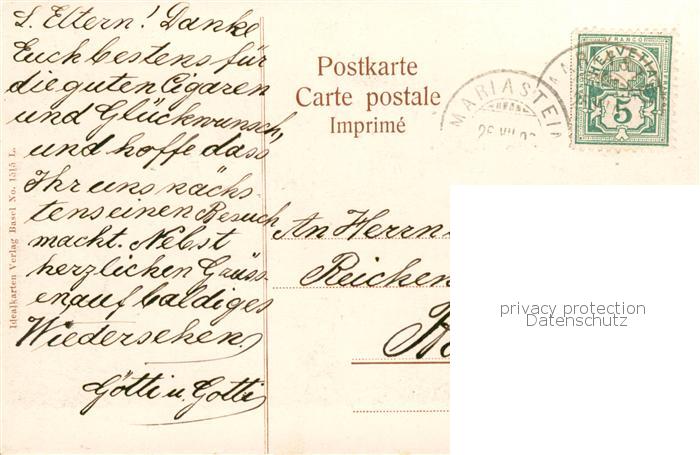 L. Eltern! Danke
Euch bestens für
die guten Cigaren
und Glückwunsch,
und hoffe dass
Ihr uns nächs-
tens einen Besuch
macht. Nebst
herzlichen Grüss-
en auf baldiges
Wiedersehen.
Götti u. Gotti
Idealkarten Verlag Basel No. 1515 L.
Postkarte
Carte postale
Imprimé
MARIASTEIN
FRANCO
HELVETIA
5
An Herrn
Reichen
privacy protection
Datenschutz